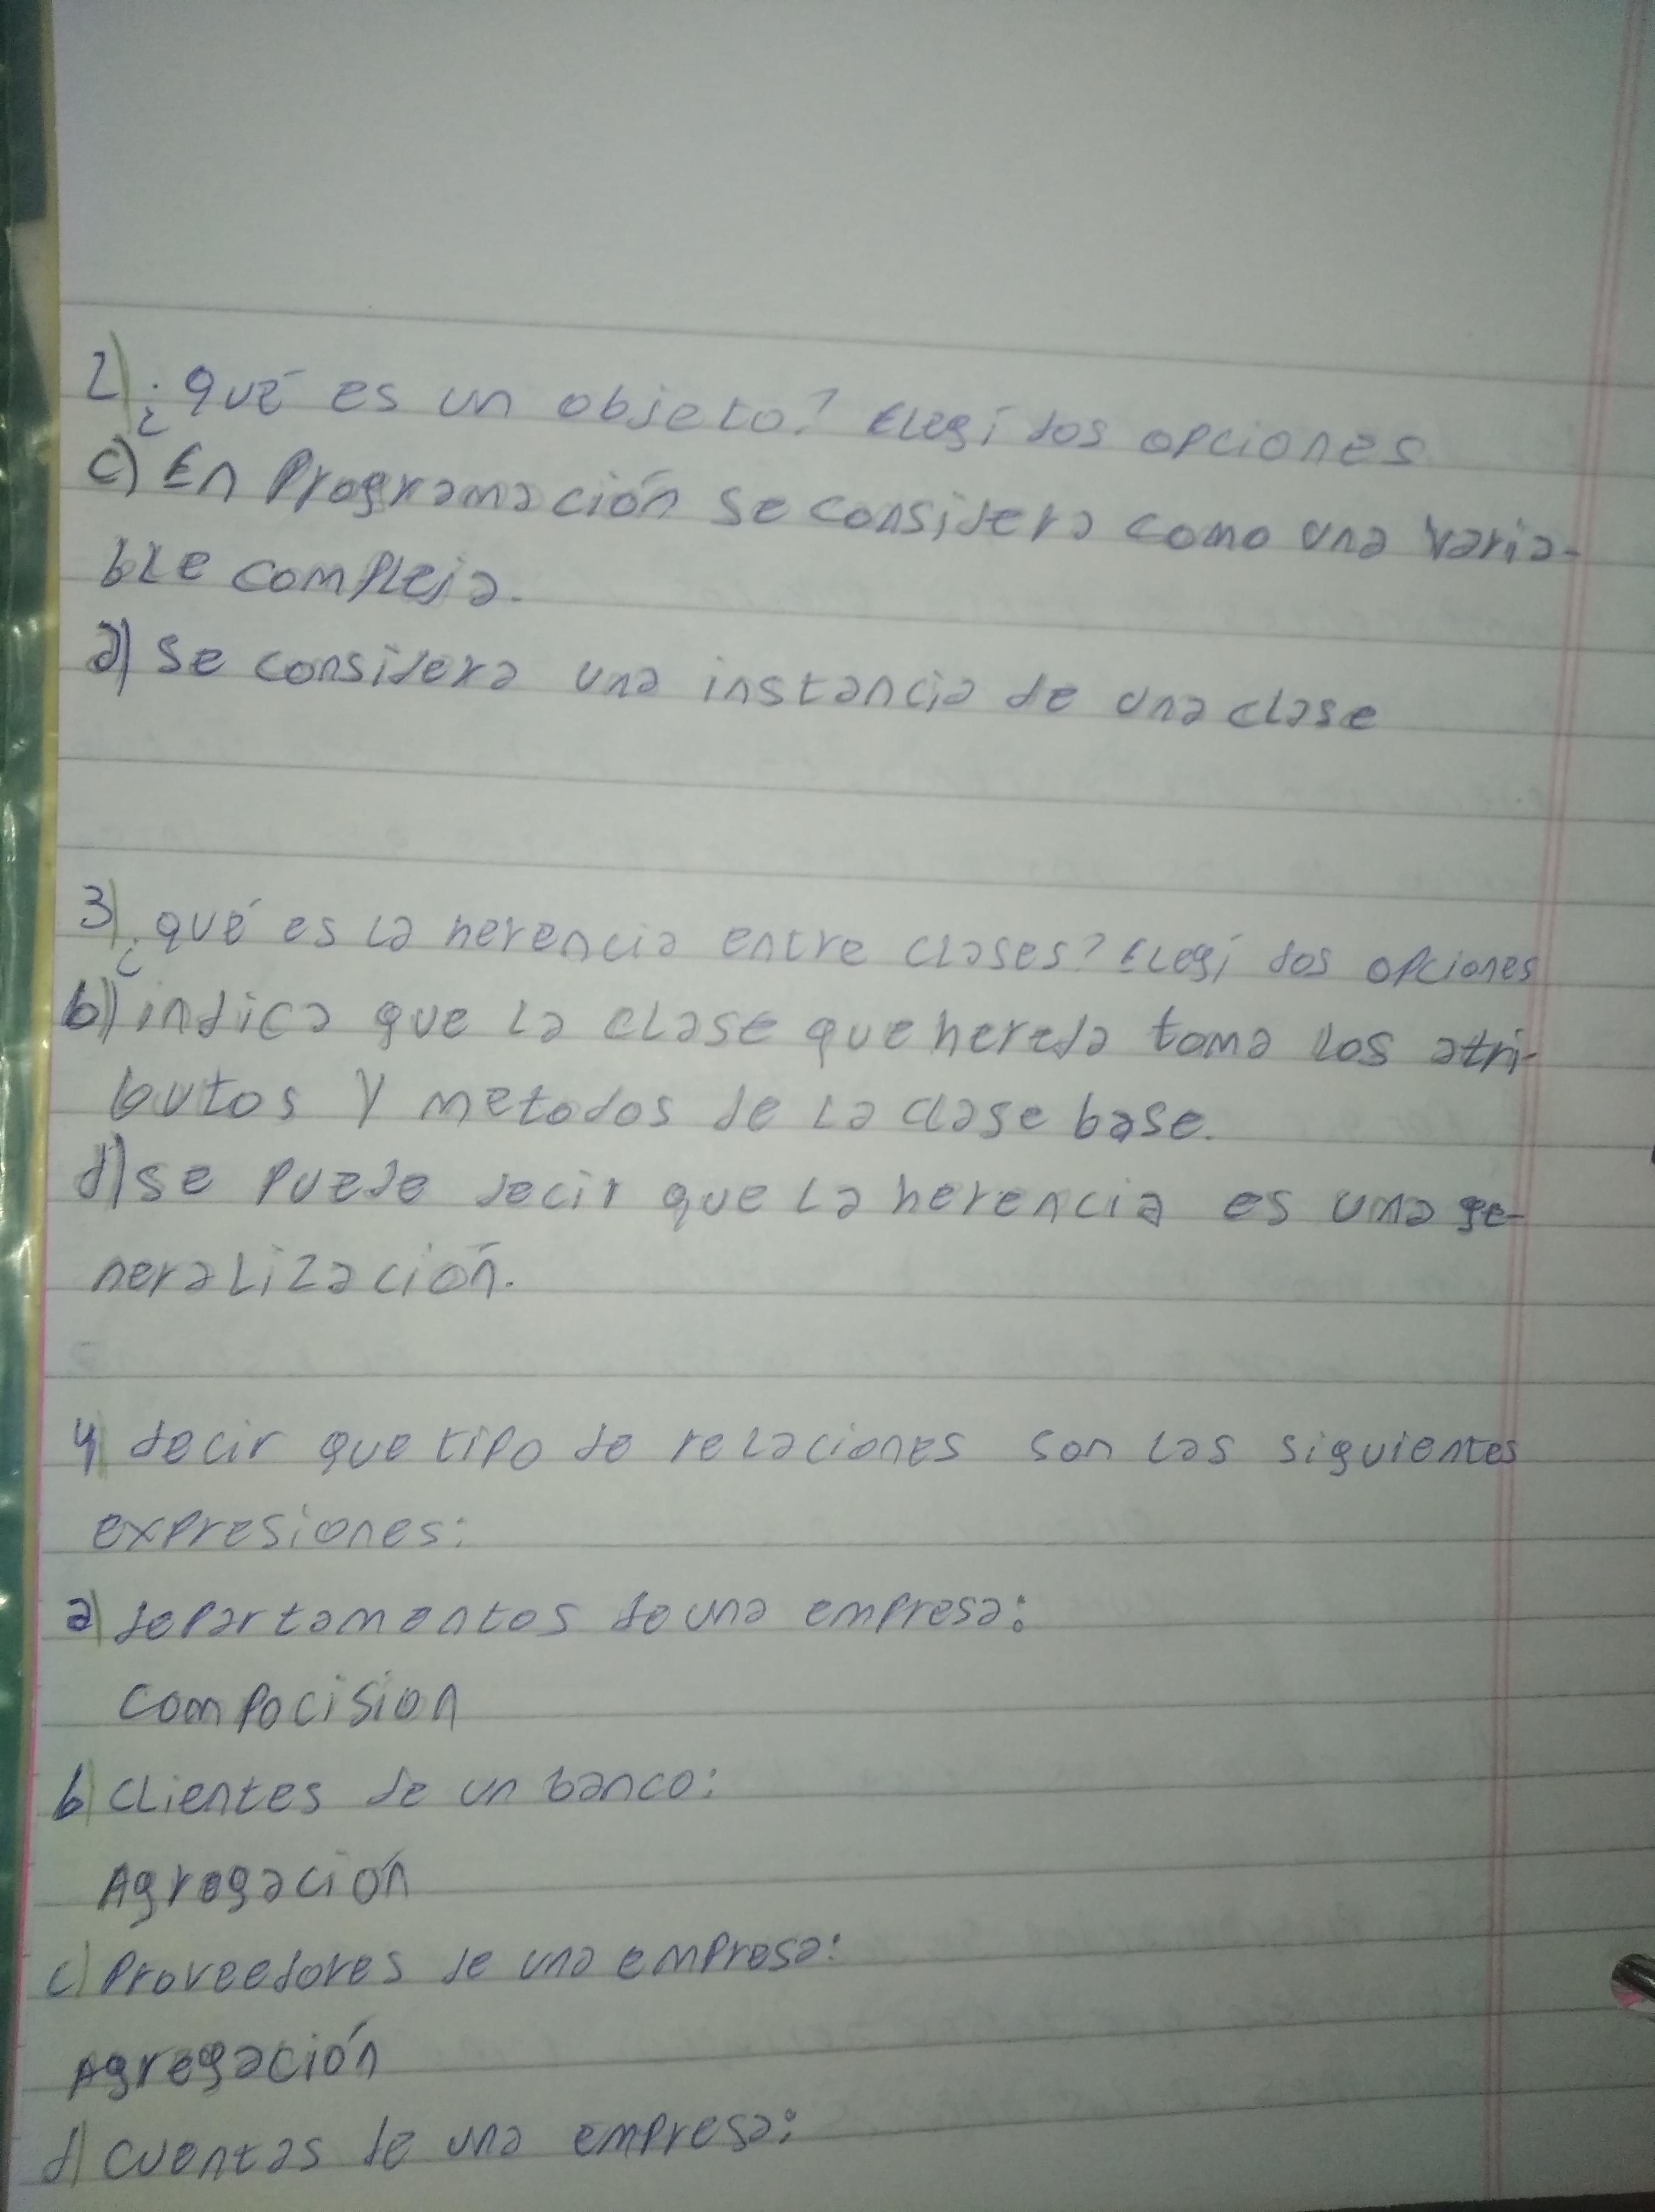 2) ¿qué es un objeto? Elegí dos opciones
c) En Programación se considera como una varia-
ble compleja.
d) se considera una instancia de una clase
3) ¿qué es la herencia entre clases? Elegí dos opciones
b) indica que la clase que hereda toma los atri-
butos y metodos de la clase base.
d) se puede decir que la herencia es una ge-
neralización.
4) decir que tipo de relaciones son las siguientes
expresiones:
a) departamentos de una empresa:
compocision
b) clientes de un banco:
Agregación
c) Proveedores de una empresa:
Agregación
d) cuentas de una empresa: